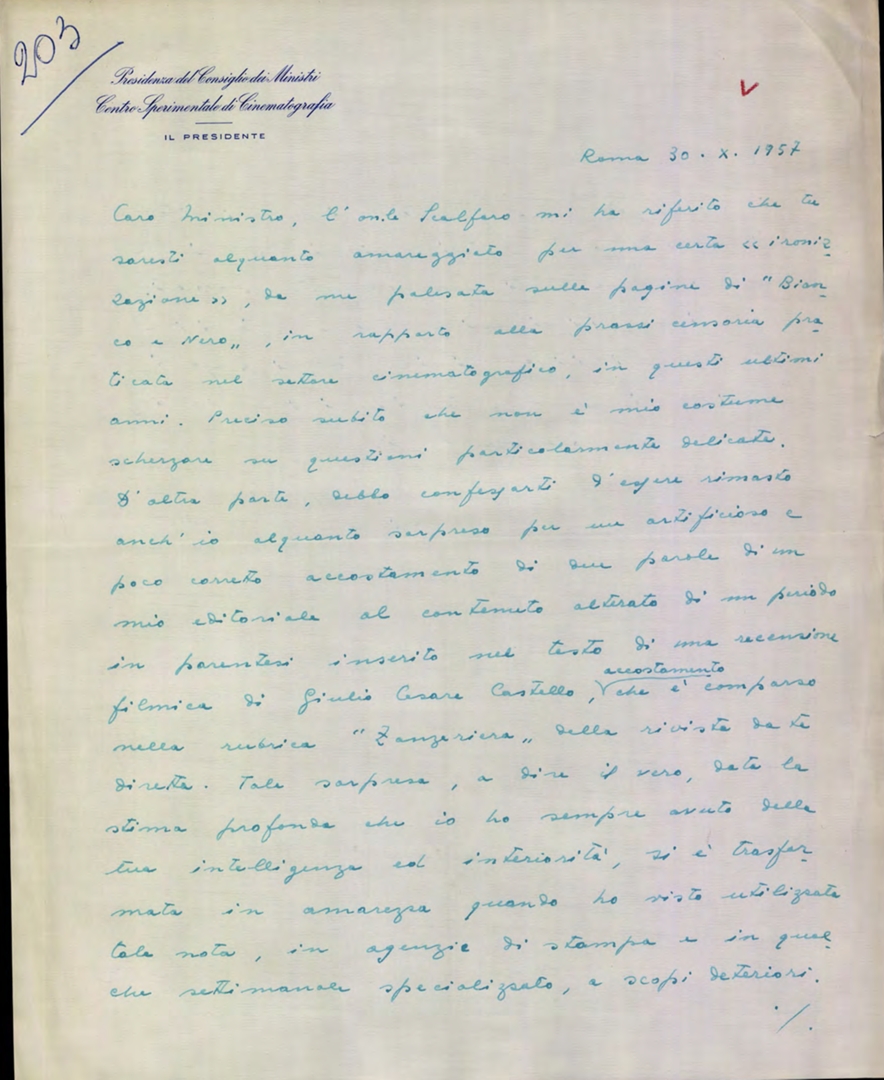 203
Presidenza del Consiglio dei Ministri
Centro Sperimentale di Cinematografia
IL PRESIDENTE
V
Roma 30 . X . 1957
Caro Ministro, l'on.le Scalfaro mi ha riferito che tu
saresti alquanto amareggiato per una certa << ironiz-
zazione >>, da me palesata sulle pagine di "Bian-
co e Nero", in rapporto alla prassi censoria pra-
ticata nel settore cinematografico, in questi ultimi
anni. Preciso subito che non è mio costume
scherzare su questioni particolarmente delicate.
D'altra parte, debbo confessarti d'essere rimasto
anch'io alquanto sorpreso per un artificioso e
poco corretto accostamento di due parole di un
mio editoriale al contenuto alterato di un periodo
in parentesi inserito nel testo di una recensione
filmica di Giulio Cesare Castello, accostamento che è comparso
nella rubrica "Zanzariera" della rivista da te
diretta. Tale sorpresa, a dire il vero, data la
stima profonda che io ho sempre avuto della
tua intelligenza ed interiorità, si è trasfor-
mata in amarezza quando ho visto utilizzata
tale nota, in agenzie di stampa e in qual-
che settimanale specializzato, a scopi deteriori.
./.